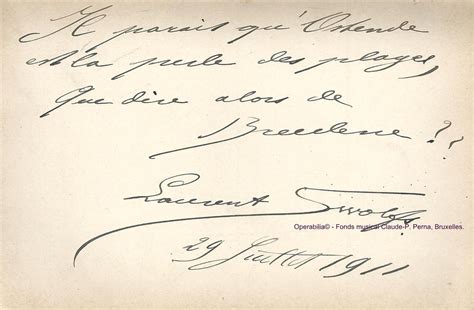 Il parait qu'Ostende
est la perle des plages,
Que dire alors de
Breedene ?
Laurent Swolfs
Operabilia© - Fonds musical Claude-P. Perna, Bruxelles.
29 Juillet 1911